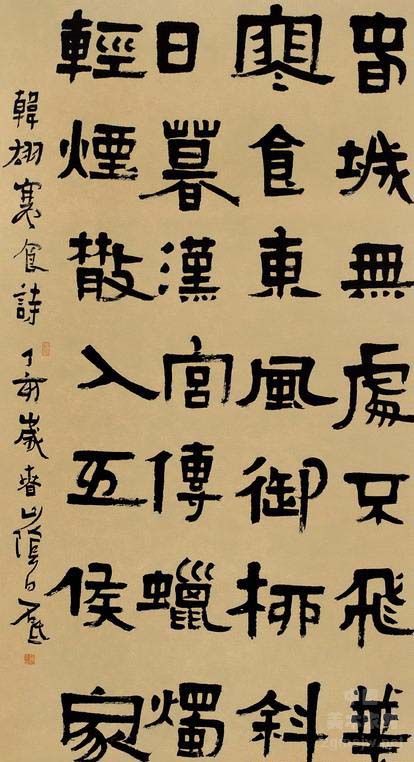 春城無處不飛華
寒食東風御柳斜
日暮漢宮傳蠟燭
輕煙散入五侯家
韓翃寒食詩 丁亥歲春山陰白砥